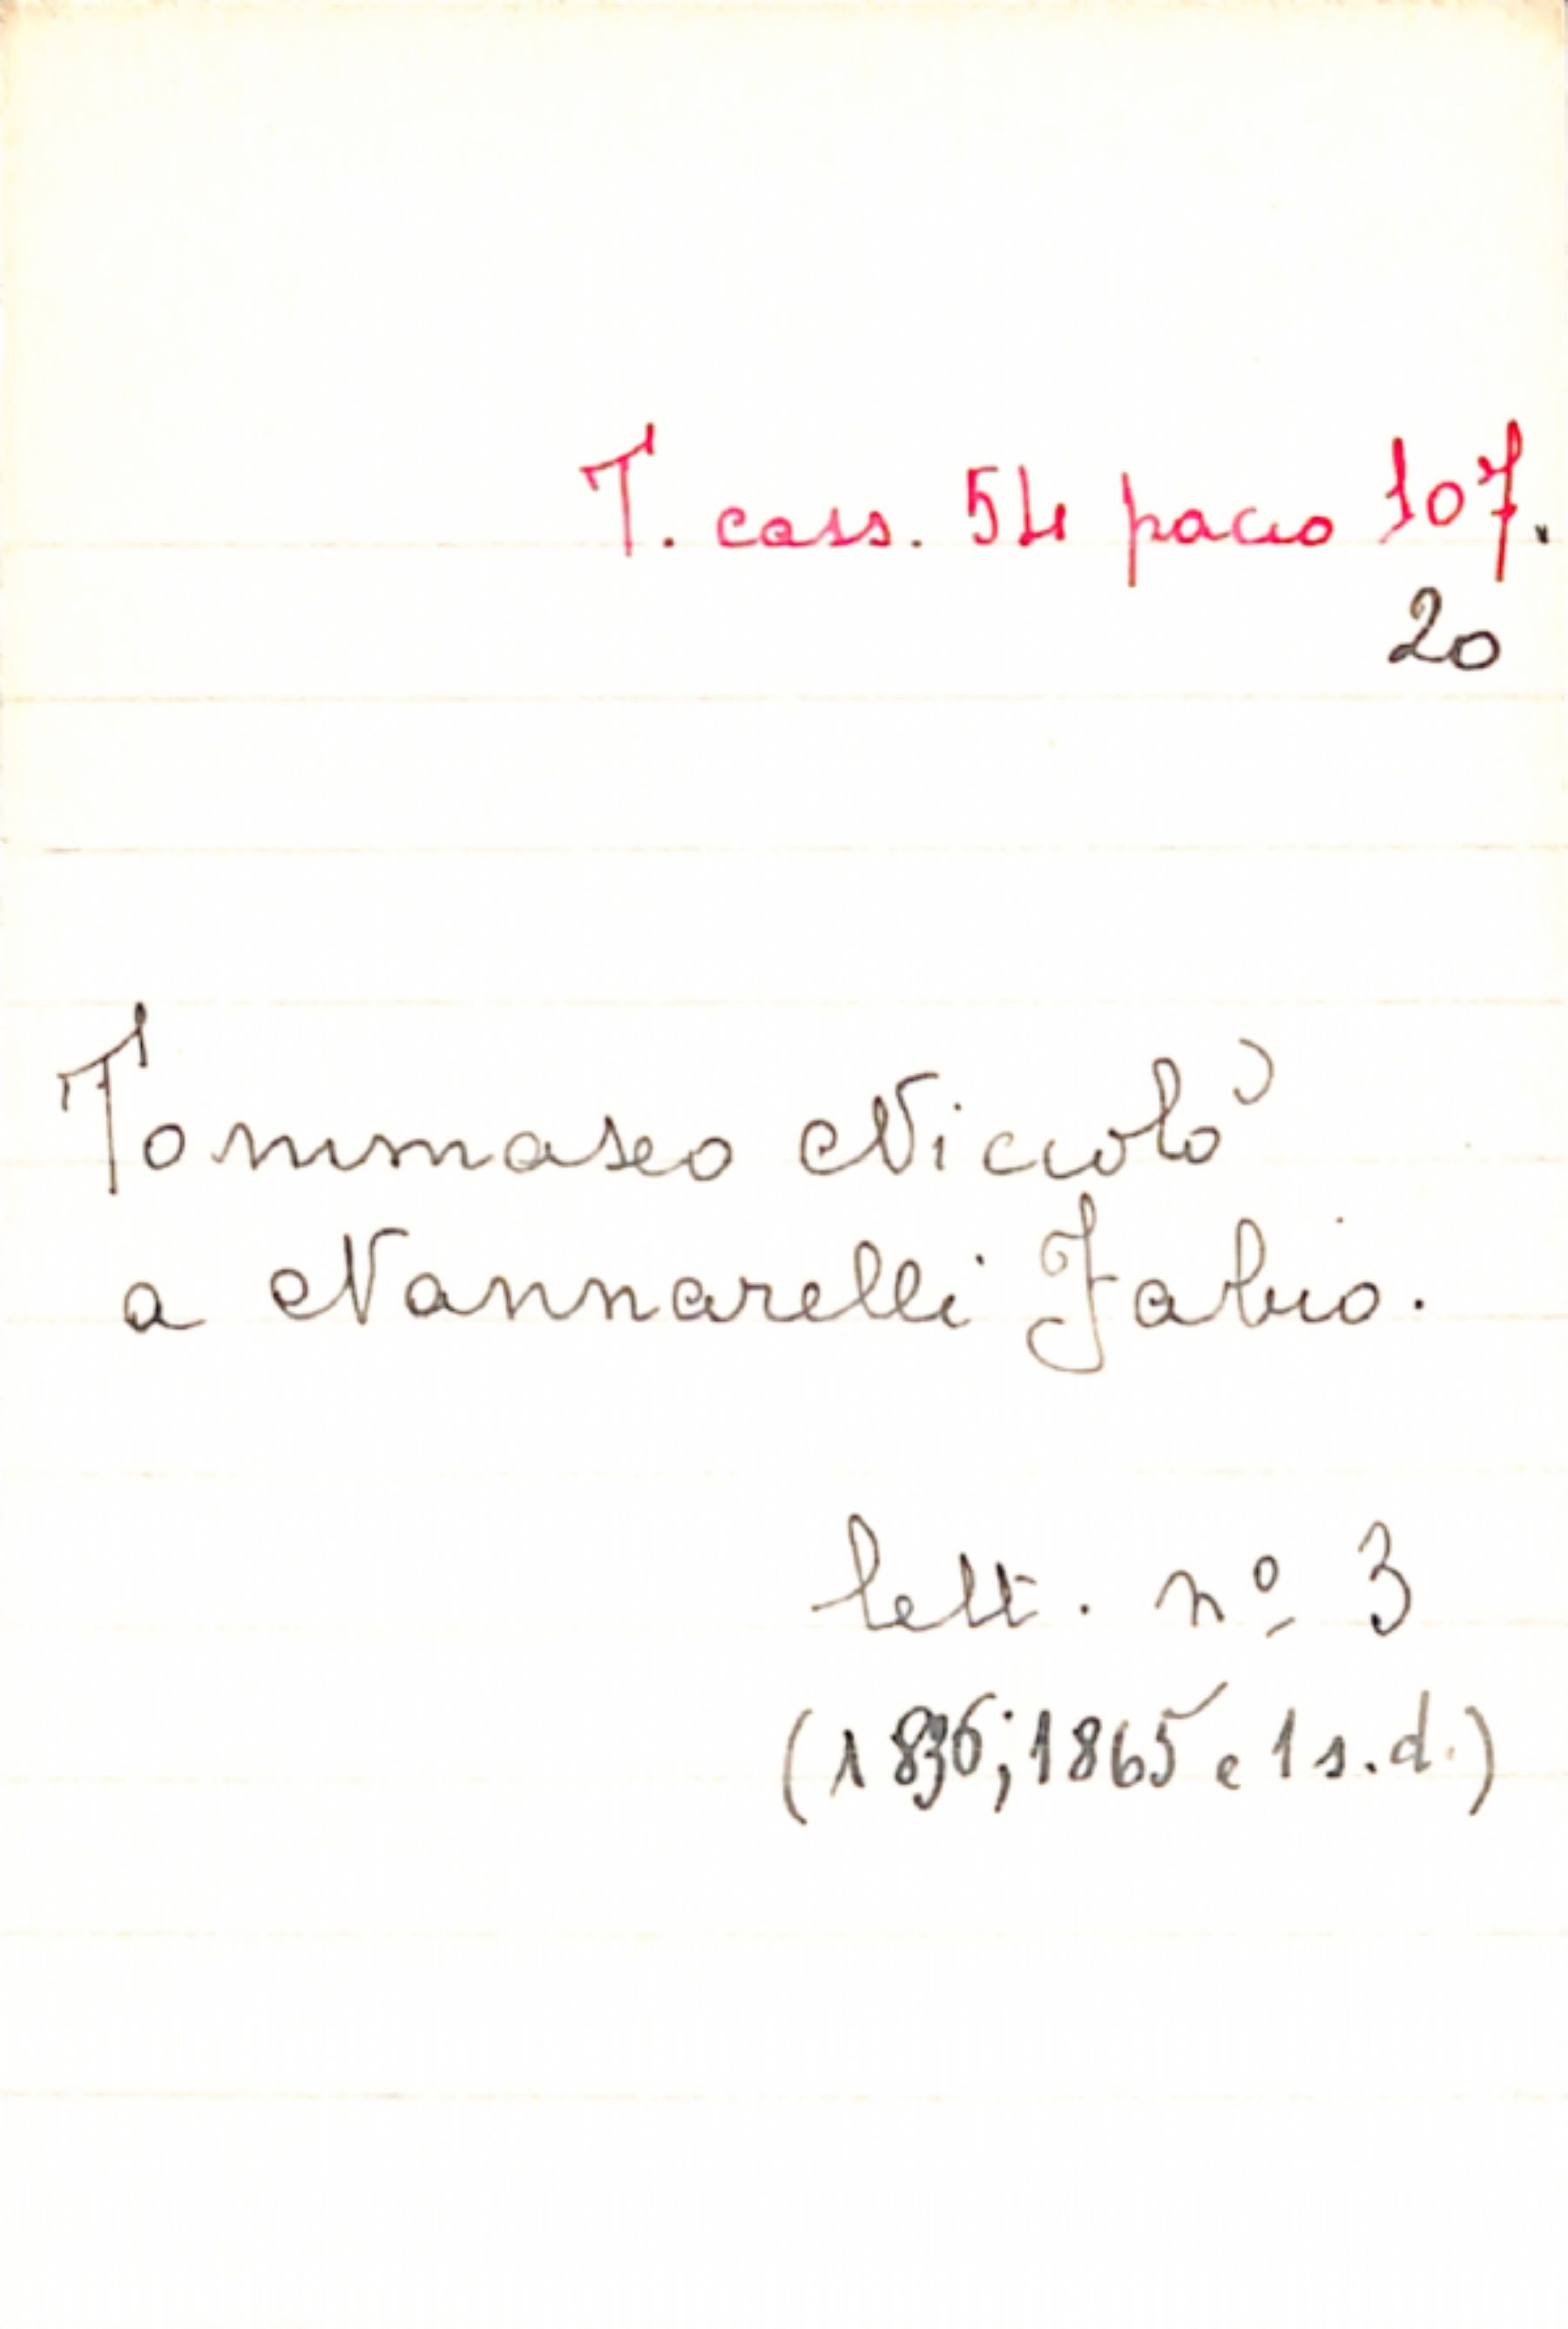 T. cass. 54 pacco 107.
20
Tommaseo Niccolò
a Nannarelli Fabio.
lett. nº 3
(1836; 1865 e 1 s.d.)